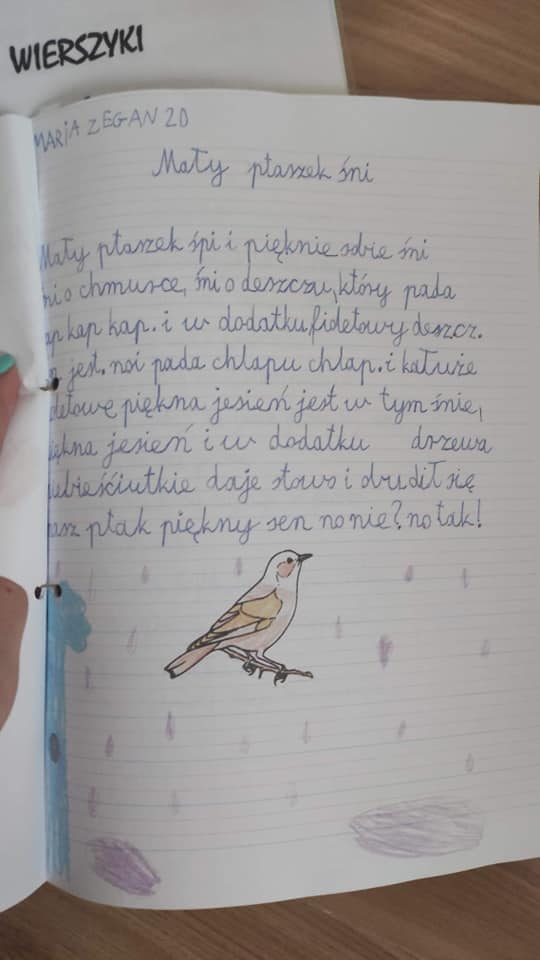 WIERSZYKI
MARIA ZEGAN 2D
Mały ptaszek śni
Mały ptaszek śpi i pięknie sobie śni
o chmurce, śni o deszczu, który pada
kap kap. i w dodatku, fioletowy deszcz.
jest. noi pada chlapu chlap. i kałuże
piękna jesień jest w tym śnie,
jesień i w dodatku drzewa
daje słowo i drudił się
ptak piękny sen no nie? no tak!